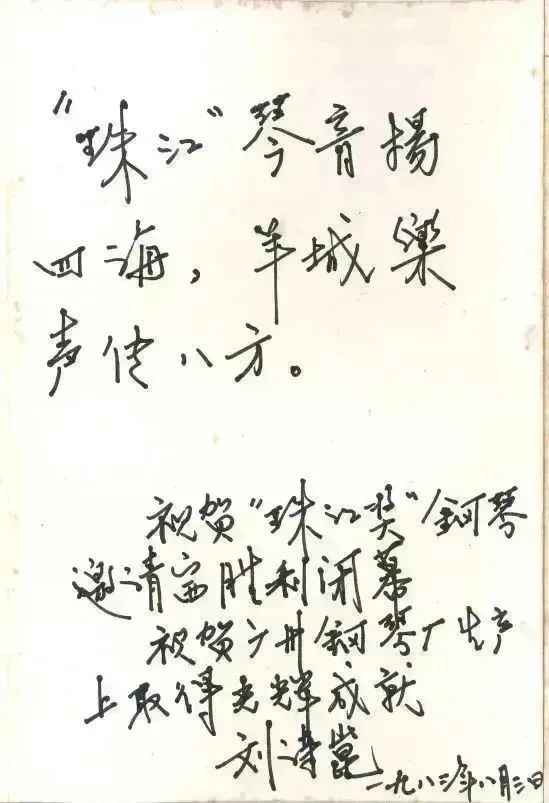 “珠江”琴音揚
四海，羊城樂
声传八方。
祝贺“珠江奖”鋼琴
邀请赛胜利闭幕
祝贺广州鋼琴厂生产
上取得光辉成就
刘诗崑
一九八三年八月三日